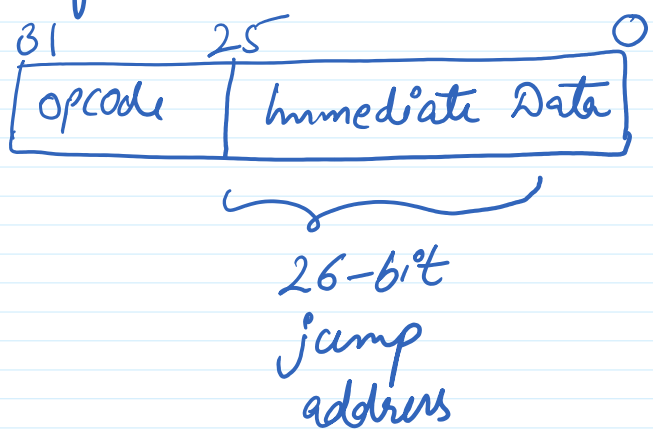 31 25 0
opcode Immediate Data
26-bit
jump
address